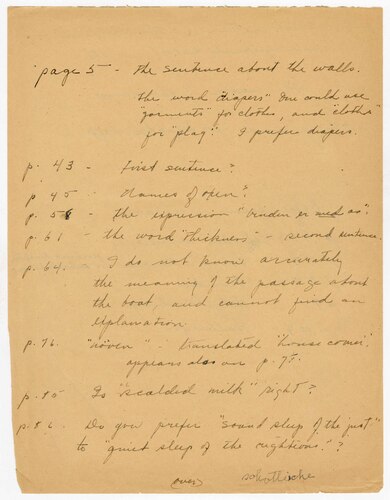 page 5 - The sentence about the walls.
The word "diapers" One could use
"garments" for clothes, and "cloths"
for "plag". I prefer diapers.
p. 43 - First sentence?
p. 45 - Names of open?
p. 58 - the expression "binder er and as".
p. 61 - the word "thickness" - second sentence.
p. 64. - I do not know accurately
the meaning of the passage about
the boat, and cannot find an
explanation
p. 76. - translated "house comer",
appears also on p. 75.
p. 85 Is "scalded milk" right?
p. 86. Do you prefer "sound sleep of the just"
to "quiet sleep of the righteous"?
(over) schottische